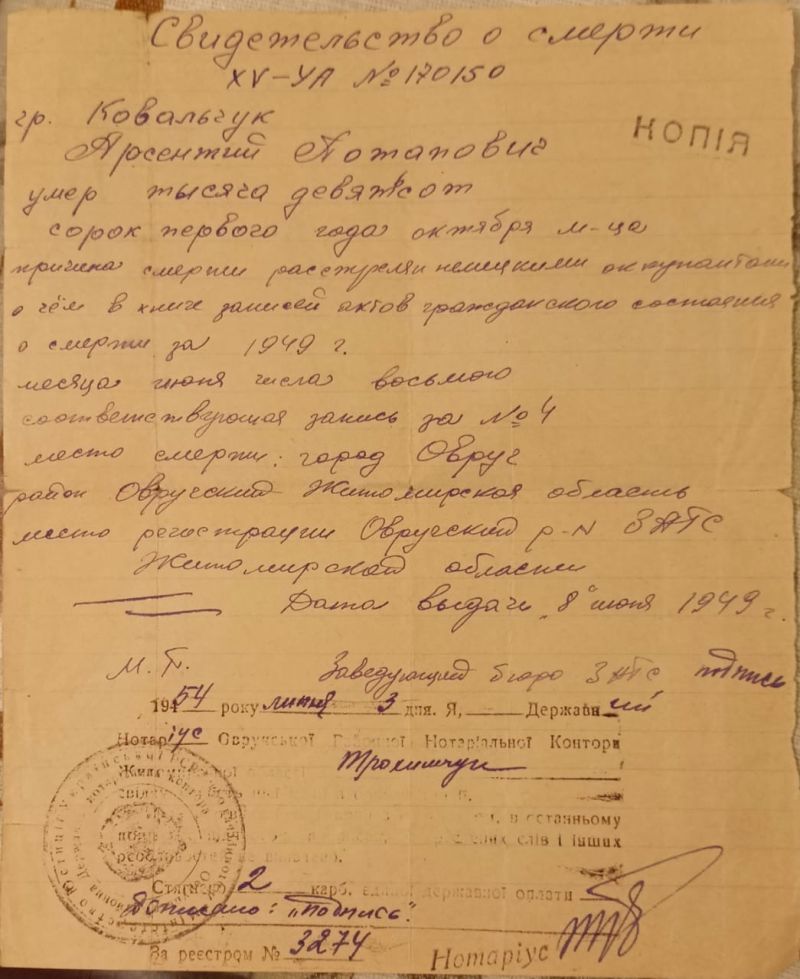 Свидетельство о смерти
XV-УА № 170150
КОПІЯ
гр. Ковальчук
Арсентий Потапович
умер тысяча девятьсот
сорок первого года октября м-ца
причина смерти расстрелян немецкими оккупантами
о чём в книге записей актов гражданского состояния
о смерти за 1949 г.
месяца июня числа восьмого
соответствующая запись за № 4
место смерти: город Овруч
район Овручский Житомирская область
место регистрации Овручский р-н ЗАГС
Житомирской области
Дата выдачи "8" июня 1949 г.
М.П. Заведующий бюро ЗАГС подпись
1954 року липня 3 дня. Я, Державний
Нотаріус Овруцької Нотаріальної Контори
Трохимчук
області
в останньому
слів і інших
не
2 карб. єдиної державної оплати
Дописано: "Подпись".
За реєстром № 3274
Нотаріус